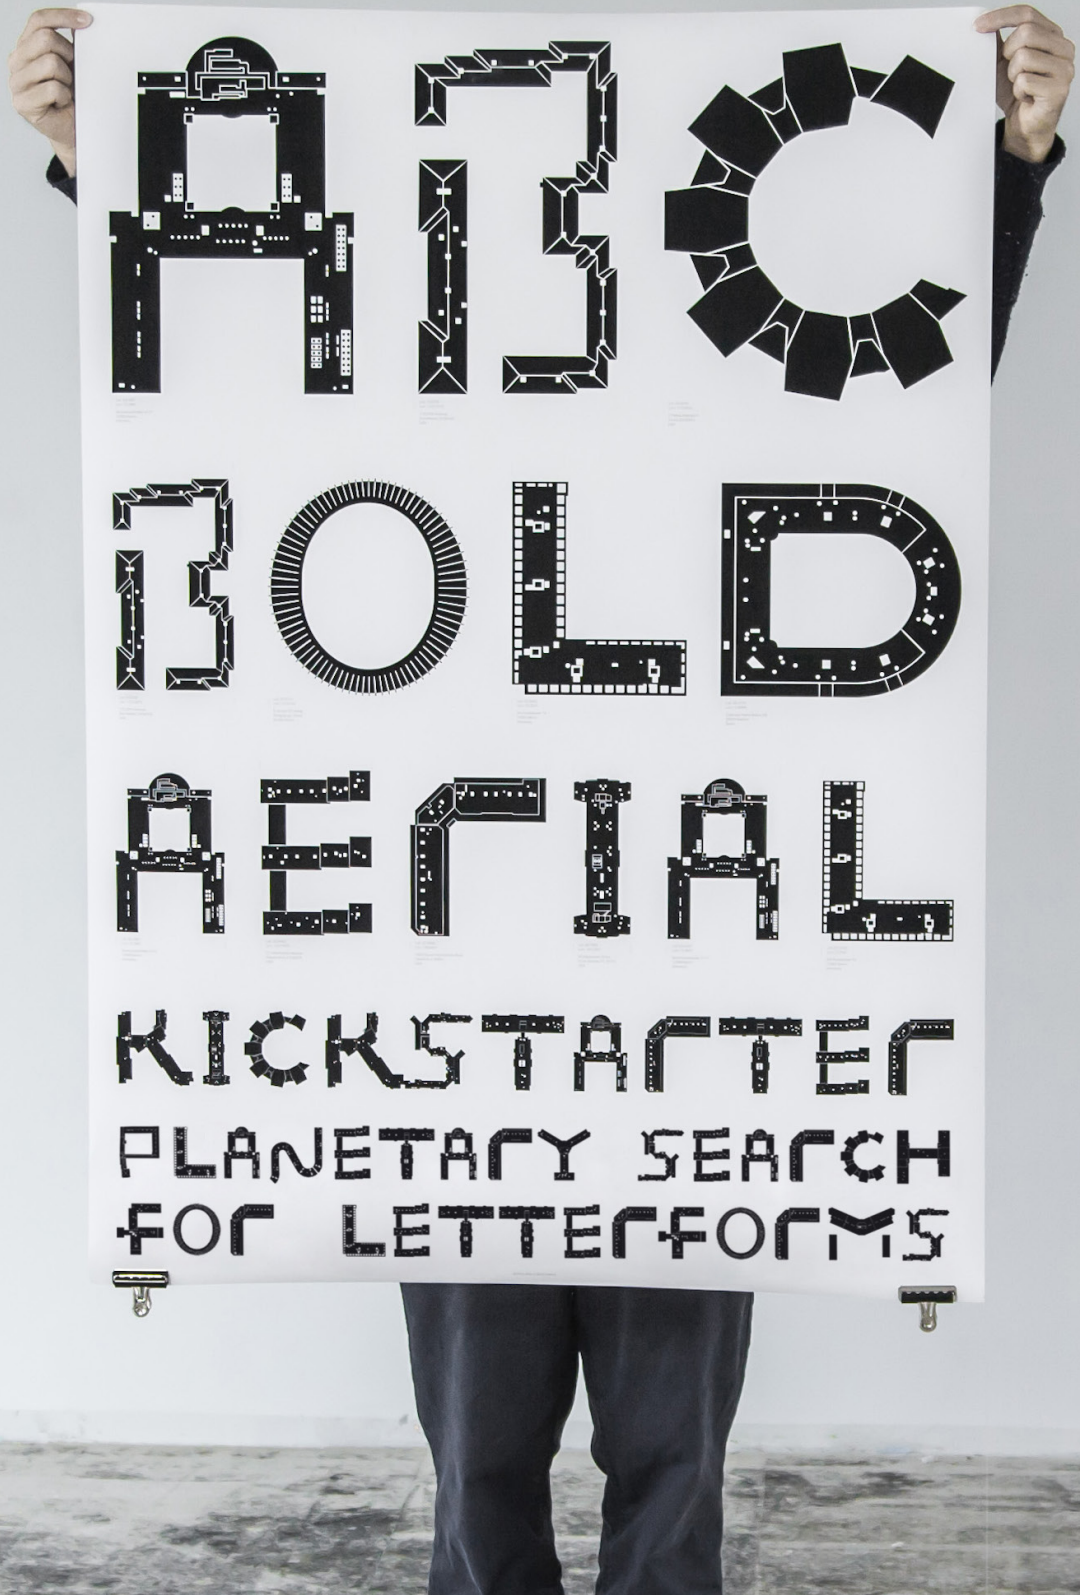 ABC
BOLD
AErIAL
KICKSTArTEr
PLANETArY SEArCH
FOr LETTErFOrMS